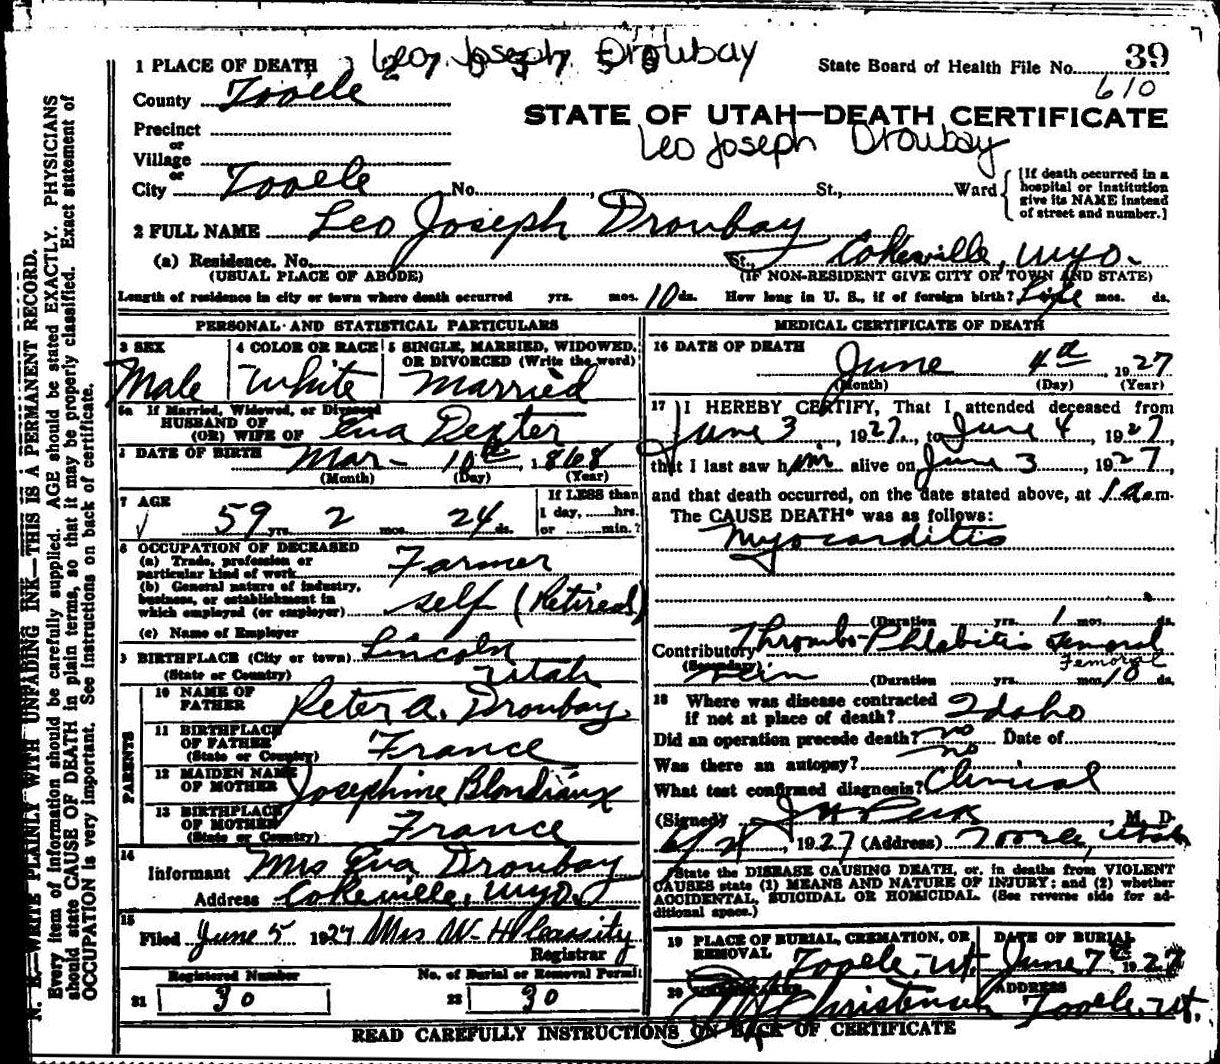 Leo Joseph Droubay
1 PLACE OF DEATH
State Board of Health File No. 39
610
County Tooele
STATE OF UTAH—DEATH CERTIFICATE
Leo Joseph Droubay
Precinct
or
Village
or
City Tooele No. , St., Ward
[If death occurred in a
hospital or institution
give its NAME instead
of street and number.]
2 FULL NAME Leo Joseph Droubay
(a) Residence. No. St., Cokeville, Wyo.
(USUAL PLACE OF ABODE) (IF NON-RESIDENT GIVE CITY OR TOWN AND STATE)
Length of residence in city or town where death occurred yrs. mos. 10 ds. How long in U. S., if of foreign birth? Life mos. ds.
PERSONAL AND STATISTICAL PARTICULARS
3 SEX
Male
4 COLOR OR RACE
White
5 SINGLE, MARRIED, WIDOWED,
OR DIVORCED (Write the word)
Married
5a If Married, Widowed, or Divorced
HUSBAND OF
(OR) WIFE OF Eva Dexter
DATE OF BIRTH Mar- 10th, 1868
(Month) (Day) (Year)
7 AGE
59 yrs. 2 mos. 24 ds.
If LESS than
1 day, hrs.
or min.?
8 OCCUPATION OF DECEASED
(a) Trade, profession or
particular kind of work Farmer
(b) General nature of industry,
business, or establishment in
which employed (or employer) self (Retired)
(c) Name of Employer
9 BIRTHPLACE (City or town) Lincoln
(State or Country) Utah
PARENTS
10 NAME OF
FATHER Peter A. Droubay
11 BIRTHPLACE
OF FATHER
(State or Country) France
12 MAIDEN NAME
OF MOTHER Josephine Blondiaux
13 BIRTHPLACE
OF MOTHER
(State or Country) France
14
Informant Mrs Eva Droubay
Address Cokeville, Wyo.
15
Filed June 5 1927 Mrs W. H. Cassity
Registrar
Registered Number
21 30
No. of Burial or Removal Permit
22 30
MEDICAL CERTIFICATE OF DEATH
16 DATE OF DEATH
June 4th 1927
(Month) (Day) (Year)
17 I HEREBY CERTIFY, That I attended deceased from
June 3, 1927, to June 4, 1927,
that I last saw him alive on June 3, 1927,
and that death occurred, on the date stated above, at 1 a.m.
The CAUSE DEATH* was as follows:
Myocarditis
(Duration yrs. 1 mos. ds.
Contributory Thrombo-Phlebitis Femoral
(Secondary) Femoral
vein (Duration yrs. mos. 10 ds.
18 Where was disease contracted
if not at place of death? Idaho
Did an operation precede death? no Date of
Was there an autopsy? no
What test confirmed diagnosis? Clinical
(Signed) J H Peck M. D.
6/4, 1927 (Address) Tooele, Utah
*State the DISEASE CAUSING DEATH, or, in deaths from VIOLENT
CAUSES state (1) MEANS AND NATURE OF INJURY; and (2) whether
ACCIDENTAL, SUICIDAL OR HOMICIDAL. (See reverse side for ad-
ditional space.)
19 PLACE OF BURIAL, CREMATION, OR
REMOVAL Tooele, Ut.
DATE OF BURIAL
June 7th 1927
20 Christensen
ADDRESS
Tooele, Ut.
READ CAREFULLY INSTRUCTIONS ON BACK OF CERTIFICATE
N. B.—WRITE PLAINLY WITH UNFADING INK—THIS IS A PERMANENT RECORD.
Every item of information should be carefully supplied. AGE should be stated EXACTLY. PHYSICIANS
should state CAUSE OF DEATH in plain terms, so that it may be properly classified. Exact statement of
OCCUPATION is very important. See instructions on back of certificate.